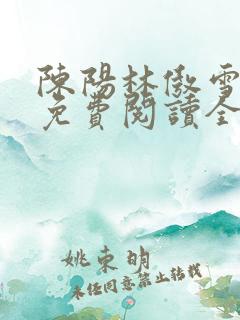 陳陽林傲雪
免費閱讀全
姚東明
未任同意禁止转载